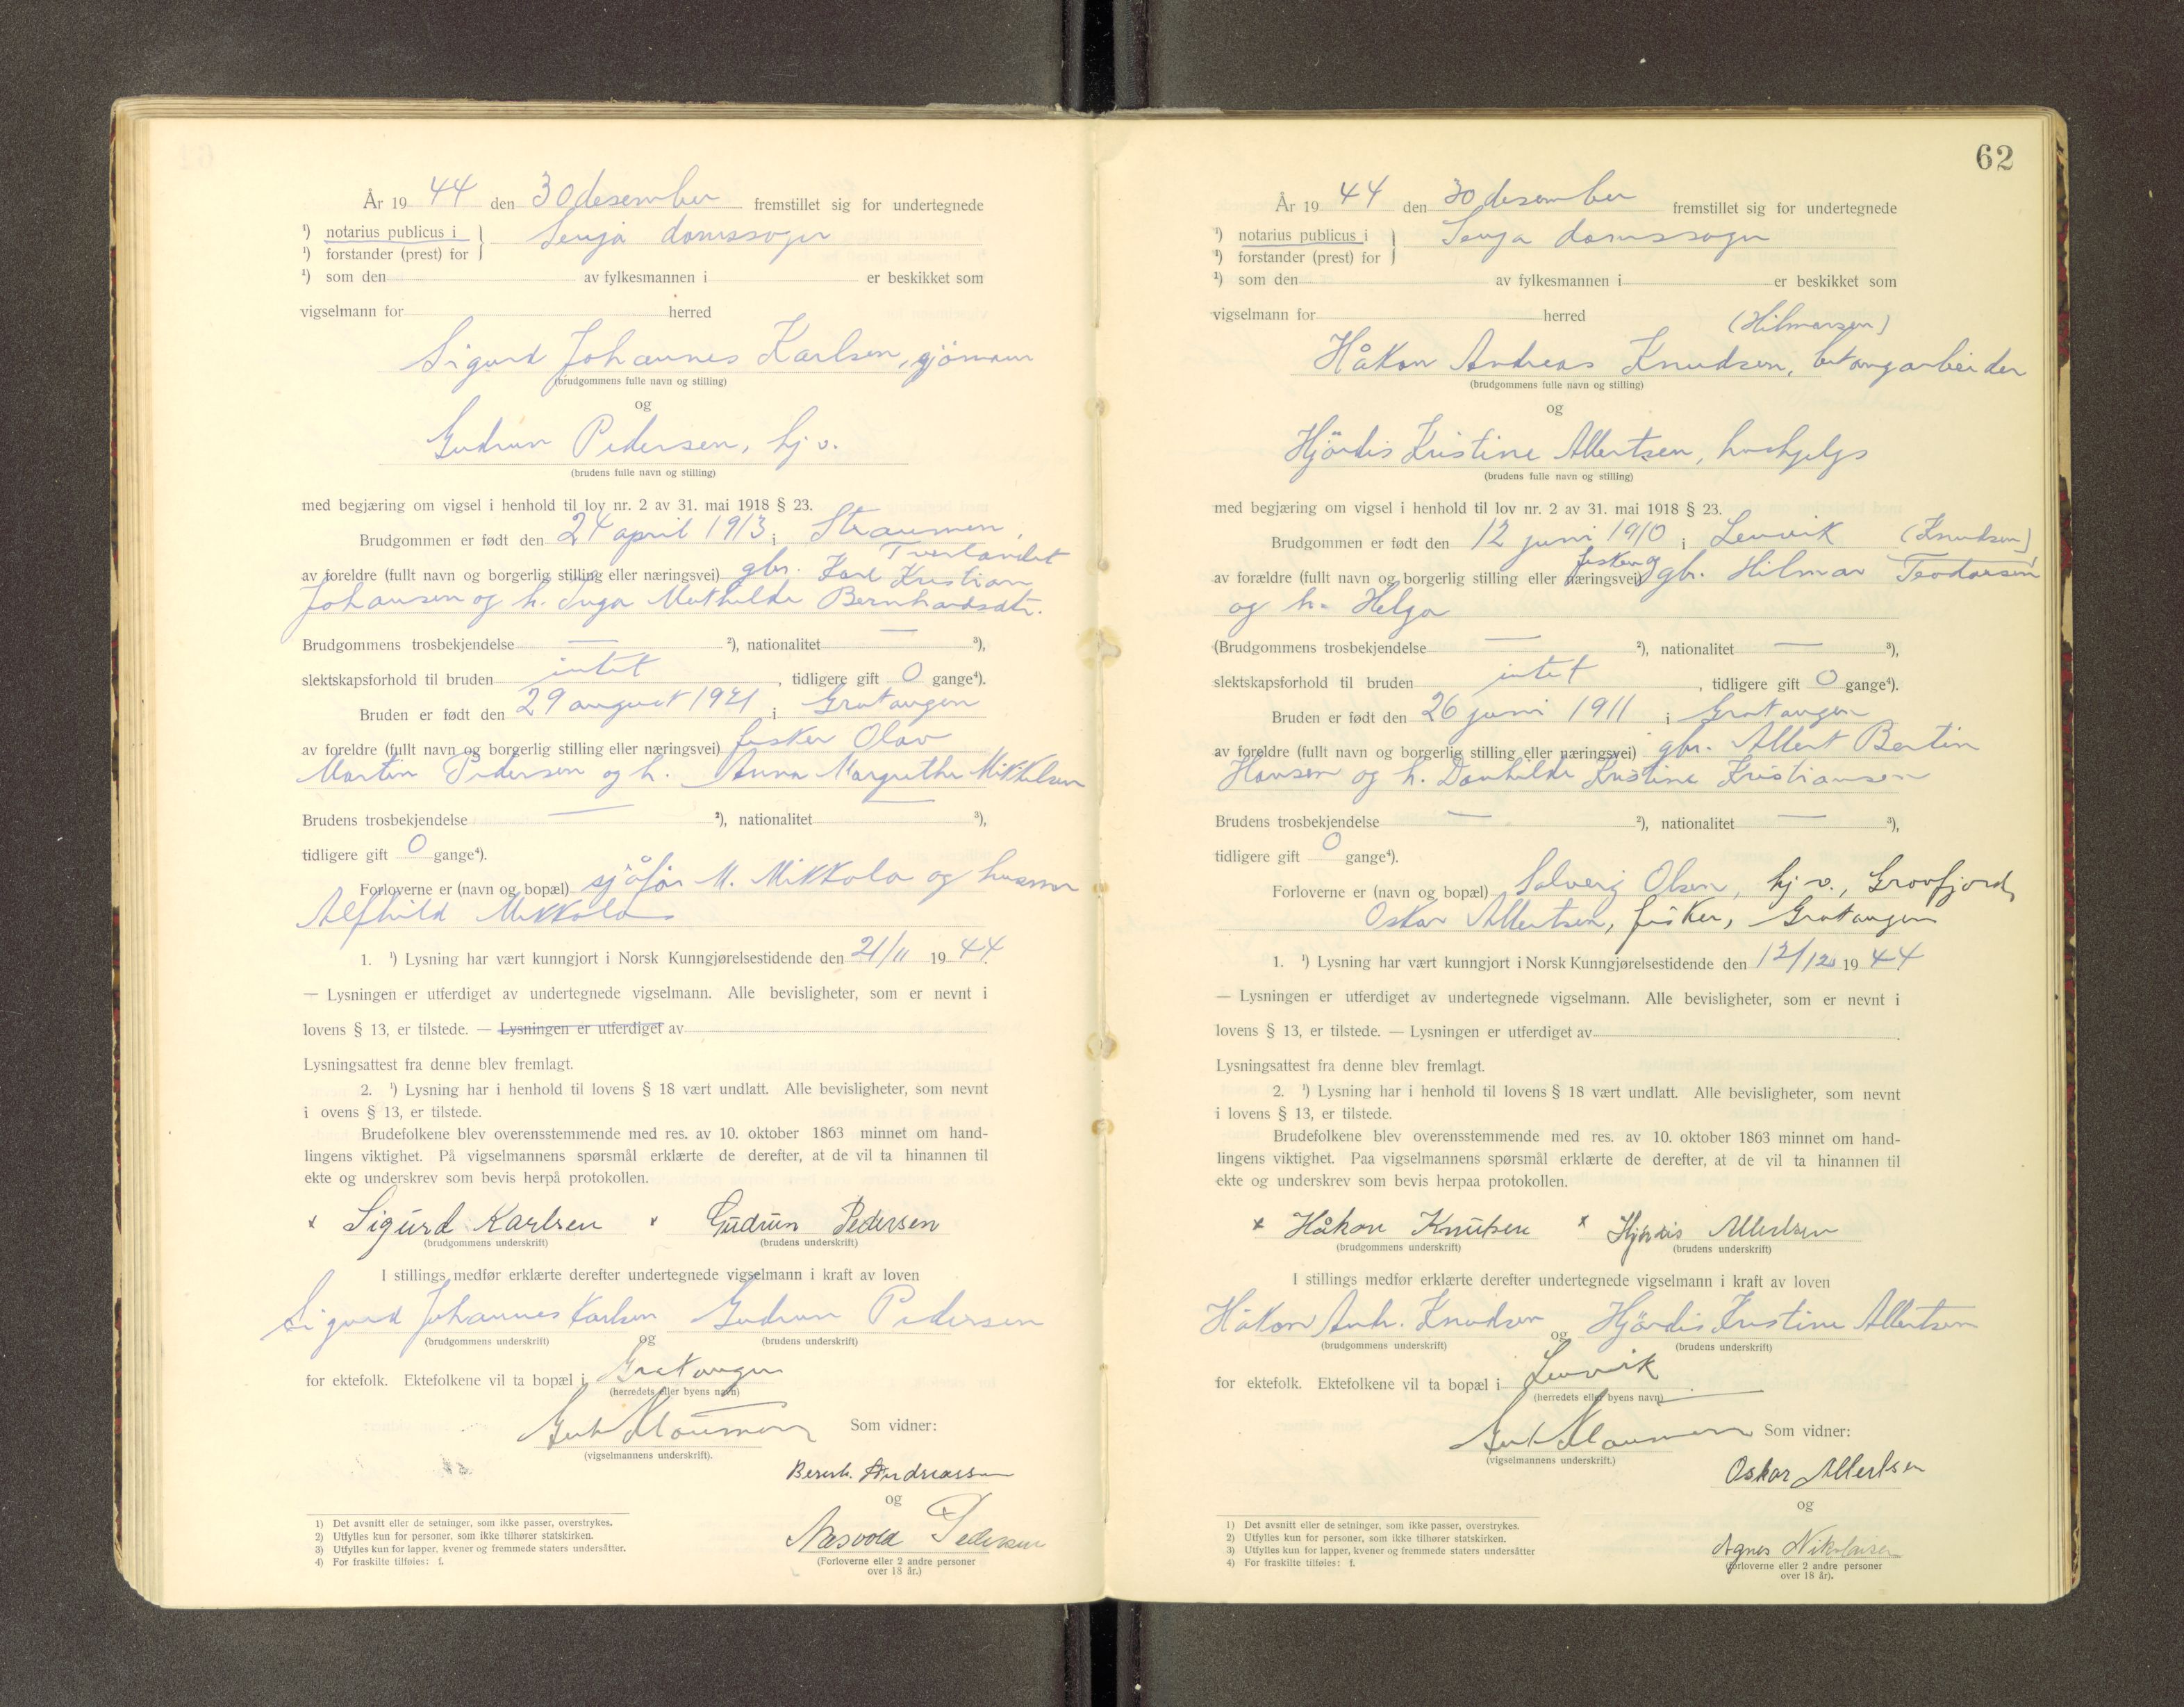 År 19 44 den 30 desember fremstillet sig for undertegnede
¹) notarius publicus i } Senja domssogn
¹) forstander (prest) for
¹) som den av fylkesmannen i er beskikket som
vigselmann for herred
Sigurd Johannes Karlsen,
(brudgommens fulle navn og stilling)
og
Gudrun Pedersen, hj v.
(brudens fulle navn og stilling)
med begjæring om vigsel i henhold til lov nr. 2 av 31. mai 1918 § 23.
Brudgommen er født den 24 april 1913 i Straumen,
Tverlandet
av foreldre (fullt navn og borgerlig stilling eller næringsvei) gbr. Karl Kristian
Johansen og h. Inga Mathilde Bernhardsdtr.
Brudgommens trosbekjendelse — ²), nationalitet — ³),
slektskapsforhold til bruden intet, tidligere gift 0 gange⁴).
Bruden er født den 29 august 1921 i Gratangen
av foreldre (fullt navn og borgerlig stilling eller næringsvei) fisker Olav
Martin Pedersen og h. Anna Margrethe Mikkelsen
Brudens trosbekjendelse — ²), nationalitet — ³),
tidligere gift 0 gange⁴).
Forloverne er (navn og bopæl) sjåfør M. Mikkola og husmor
Alfhild Mikkola
1. ¹) Lysning har vært kunngjort i Norsk Kunngjørelsestidende den 21/11 19 44.
— Lysningen er utferdiget av undertegnede vigselmann. Alle bevisligheter, som er nevnt i
lovens § 13, er tilstede. — Lysningen er utferdiget av
Lysningsattest fra denne blev fremlagt.
2. ¹) Lysning har i henhold til lovens § 18 vært undlatt. Alle bevisligheter, som nevnt
i ovens § 13, er tilstede.
Brudefolkene blev overensstemmende med res. av 10. oktober 1863 minnet om hand-
lingens viktighet. På vigselmannens spørsmål erklærte de derefter, at de vil ta hinannen til
ekte og underskrev som bevis herpå protokollen.
x Sigurd Karlsen x Gudrun Pedersen
(brudgommens underskrift) (brudens underskrift)
I stillings medfør erklærte derefter undertegnede vigselmann i kraft av loven
Sigurd Johannes Karlsen og Gudrun Pedersen
(brudgommens underskrift) (brudens underskrift)
for ektefolk. Ektefolkene vil ta bopæl i Gratangen
(herredets eller byens navn)
Som vidner:
(vigselmannens underskrift).
Andreassen
og
Pedersen
(Forloverne eller 2 andre personer
over 18 år.)
1) Det avsnitt eller de setninger, som ikke passer, overstrykes.
2) Utfylles kun for personer, som ikke tilhører statskirken.
3) Utfylles kun for lapper, kvener og fremmede staters undersåtter.
4) For fraskilte tilføies: f.
62
År 19 44 den 30 desember fremstillet sig for undertegnede
¹) notarius publicus i } Senja domssogn
¹) forstander (prest) for
¹) som den av fylkesmannen i er beskikket som
vigselmann for herred
(Hilmarsen)
Håkon Andreas Knudsen, betongarbeider
(brudgommens fulle navn og stilling)
og
Hjördis Kristine Albertsen, hushjelp
(brudens fulle navn og stilling)
med begjæring om vigsel i henhold til lov nr. 2 av 31. mai 1918 § 23.
Brudgommen er født den 12 juni 1910 i Lenvik (Knudsen)
av forældre (fullt navn og borgerlig stilling eller næringsvei) fisker og gbr. Hilmar Teodorsen
og h. Helga
(Brudgommens trosbekjendelse — ²), nationalitet — ³),
slektskapsforhold til bruden intet, tidligere gift 0 gange⁴).
Bruden er født den 26 juni 1911 i Gratangen
av foreldre (fullt navn og borgerlig stilling eller næringsvei) gbr. Albert Bertin
Hansen og h. Danhilde Kristine Kristiansen
Brudens trosbekjendelse — ²), nationalitet — ³),
tidligere gift 0 gange⁴).
Forloverne er (navn og bopæl) Solveig Olsen, hj v., Grovfjord,
Oskar Albertsen, fisker, Gratangen
1. ¹) Lysning har vært kunngjort i Norsk Kunngjørelsestidende den 12/12 19 44
— Lysningen er utferdiget av undertegnede vigselmann. Alle bevisligheter, som er nevnt i
lovens § 13, er tilstede. — Lysningen er utferdiget av
Lysningsattest fra denne blev fremlagt.
2. ¹) Lysning har i henhold til lovens § 18 vært undlatt. Alle bevisligheter, som nevnt
i lovens § 13, er tilstede.
Brudefolkene blev overensstemmende med res. av 10. oktober 1863 minnet om hand-
lingens viktighet. Paa vigselmannens spørsmål erklærte de derefter, at de vil ta hinannen til
ekte og underskrev som bevis herpaa protokollen.
x Håkon Knutsen x Hjørdis Albertsen
(brudgommens underskrift) (brudens underskrift)
I stillings medfør erklærte derefter undertegnede vigselmann i kraft av loven
Håkon Andr. Knudsen og Hjördis Kristine Albertsen
(brudgommens underskrift) (brudens underskrift)
for ektefolk. Ektefolkene vil ta bopæl i Lenvik
(herredets eller byens navn)
Som vidner:
(vigselmannens underskrift.)
Oskar Albertsen
og
Agnes Nikolaisen
(Forloverne eller 2 andre personer
over 18 år).
1) Det avsnitt eller de setninger, som ikke passer, overstrykes.
2) Utfylles kun for personer, som ikke tilhører statskirken.
3) Utfylles kun for lapper, kvener og fremmede staters undersåtter
4) For fraskilte tilføies: f.